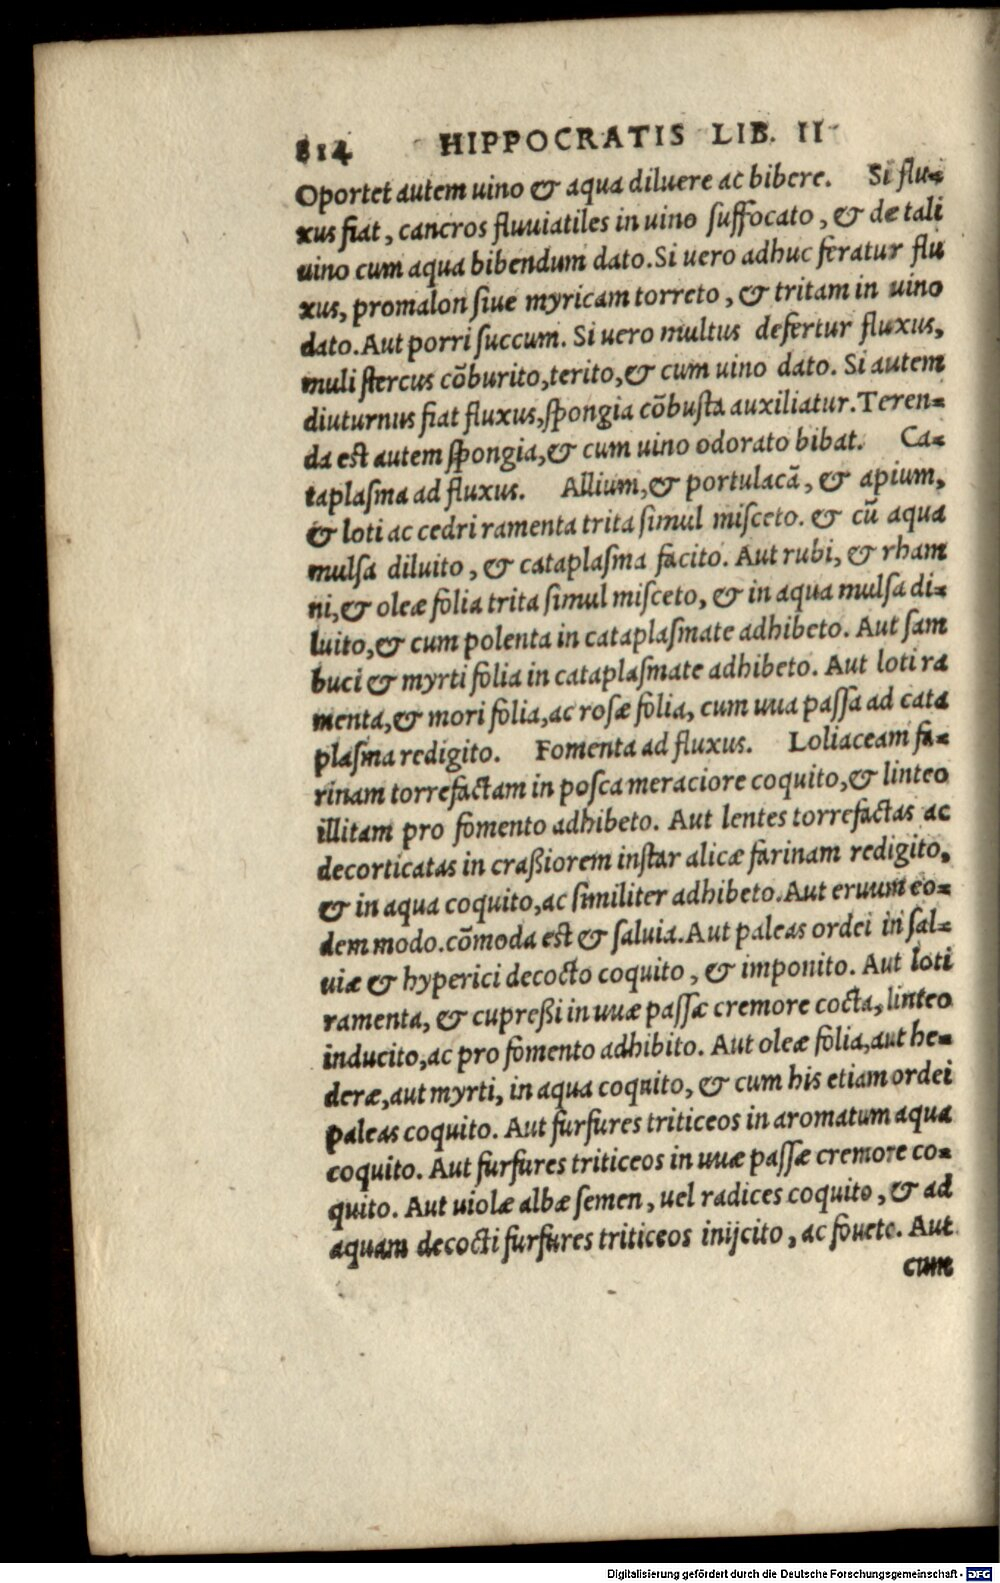 814 HIPPOCRATIS LIB. II
Oportet autem uino & aqua diluere ac bibere. Si flu-
xus fiat, cancros fluuiatiles in uino suffocato, & de tali
uino cum aqua bibendum dato. Si uero adhuc feratur flu
xus, promalon siue myricam torreto, & tritam in uino
dato. Aut porri succum. Si uero multus defertur fluxus,
muli stercus cõburito, terito, & cum uino dato. Si autem
diuturnus fiat fluxus, spongia cõbusta auxiliatur. Teren-
da est autem spongia, & cum uino odorato bibat. Ca-
taplasma ad fluxus. Allium, & portulacã, & apium,
& loti ac cedri ramenta trita simul misceto. & cũ aqua
mulsa diluito, & cataplasma facito. Aut rubi, & rham
ni, & oleæ folia trita simul misceto, & in aqua mulsa di-
luito, & cum polenta in cataplasmate adhibeto. Aut sam
buci & myrti folia in cataplasmate adhibeto. Aut loti ra
menta, & mori folia, ac rosæ folia, cum uua passa ad cata
plasma redigito. Fomenta ad fluxus. Loliaceam fa-
rinam torrefactam in posca meraciore coquito, & linteo
illitam pro fomento adhibeto. Aut lentes torrefactas ac
decorticatas in craßiorem instar alicæ farinam redigito,
& in aqua coquito, ac similiter adhibeto. Aut eruum eo-
dem modo. cõmoda est & saluia. Aut paleas ordei in sal-
uiæ & hyperici decocto coquito, & imponito. Aut loti
ramenta, & cupreßi in uuæ passæ cremore cocta, linteo
inducito, ac pro fomento adhibito. Aut oleæ folia, aut he-
deræ, aut myrti, in aqua coquito, & cum his etiam ordei
paleas coquito. Aut furfures triticeos in aromatum aqua
coquito. Aut furfures triticeos in uuæ passæ cremore co-
quito. Aut uiolæ albæ semen, uel radices coquito, & ad
aquam decocti furfures triticeos inijcito, ac foueto. Aut
cum
Digitalisierung gefördert durch die Deutsche Forschungsgemeinschaft - DFG